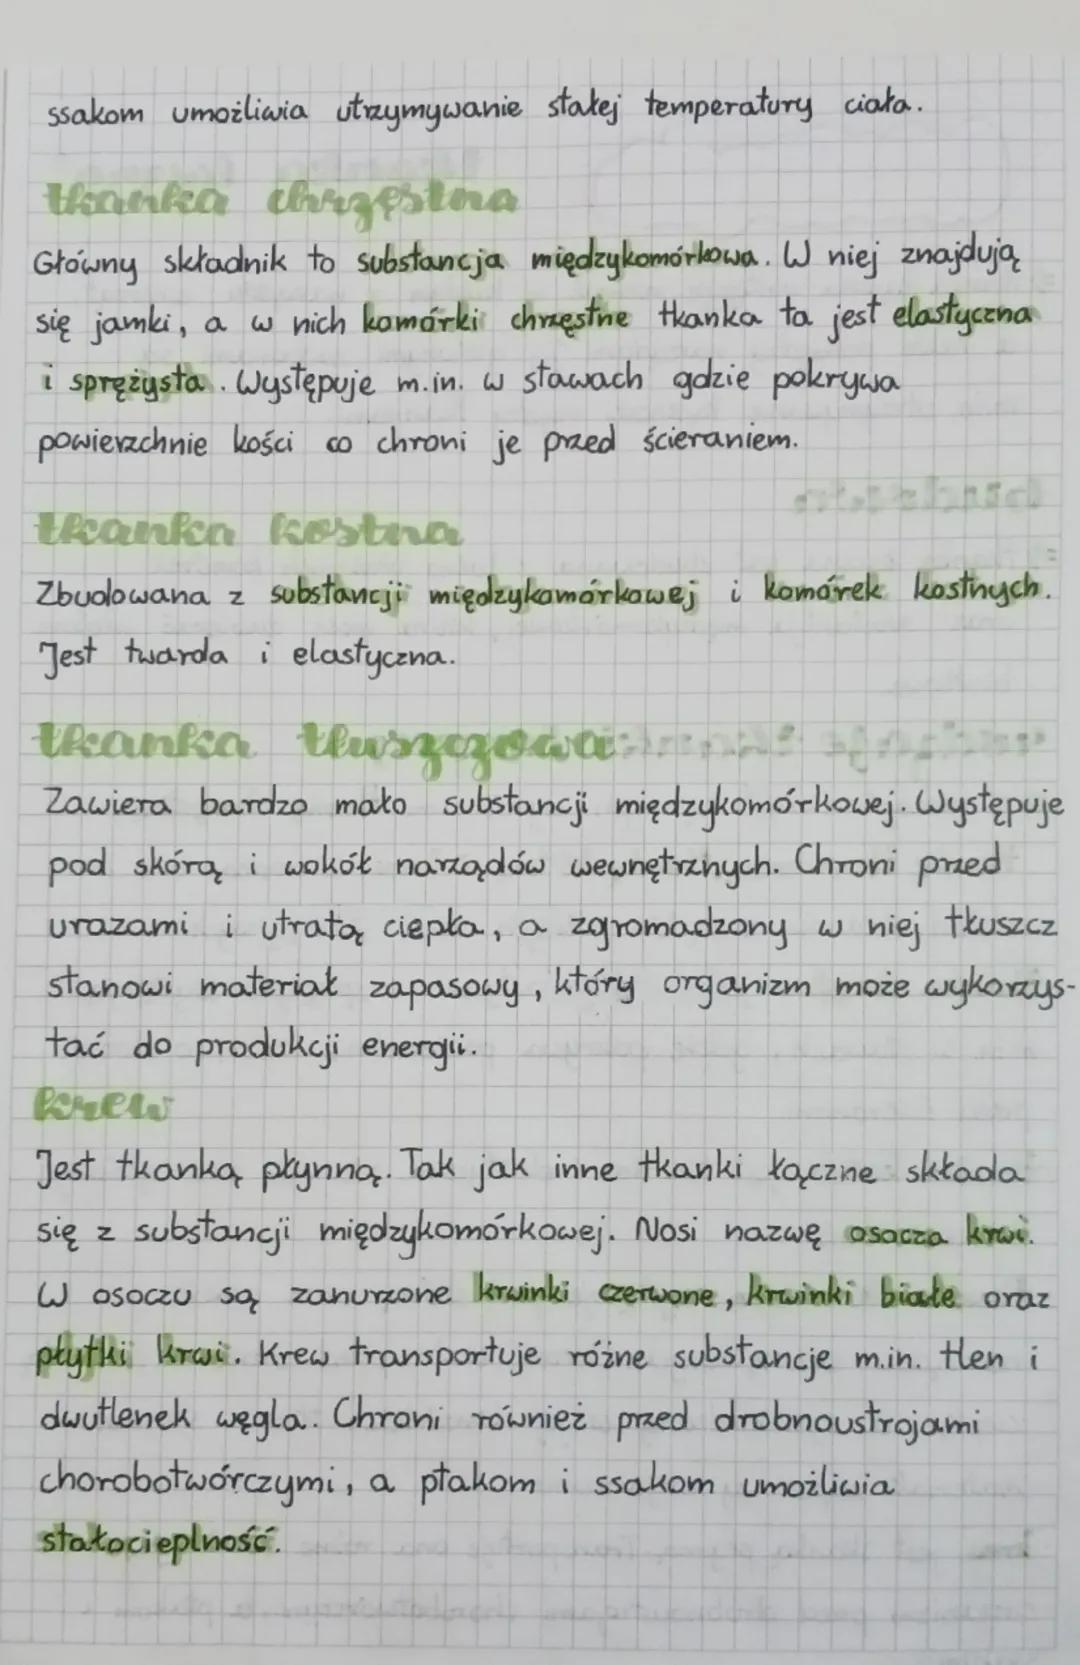 ssakom umożliwia utrzymywanie stałej temperatury ciała.
tkanka chrzęstna
Główny składnik to substancja międzykomórkowa. W niej znajdują
się jamki, a w nich komórki chrzęstne tkanka ta jest elastyczna
i sprężysta. Występuje m.in. w stawach gdzie pokrywa
powierzchnie kości co chroni je przed ścieraniem.
tkanka kostna
Zbudowana z substancji międzykomórkowej i komórek kostnych.
Jest twarda i elastyczna.
tkanka tłuszczowa
Zawiera bardzo mało substancji międzykomórkowej. Występuje
pod skórą i wokół narządów wewnętrznych. Chroni przed
urazami i utratą ciepła, a zgromadzony w niej tłuszcz
stanowi materiał zapasowy, który organizm może wykorzys-
tać do produkcji energii.
krew
Jest tkanką płynną. Tak jak inne tkanki łączne składa
się z substancji międzykomórkowej. Nosi nazwę osocza krwi.
W osoczu są zanurzone krwinki czerwone, krwinki białe oraz
płytki krwi. Krew transportuje różne substancje m.in. tlen i
dwutlenek węgla. Chroni również przed drobnoustrojami
chorobotwórczymi, a ptakom i ssakom umożliwia
stałocieplność.